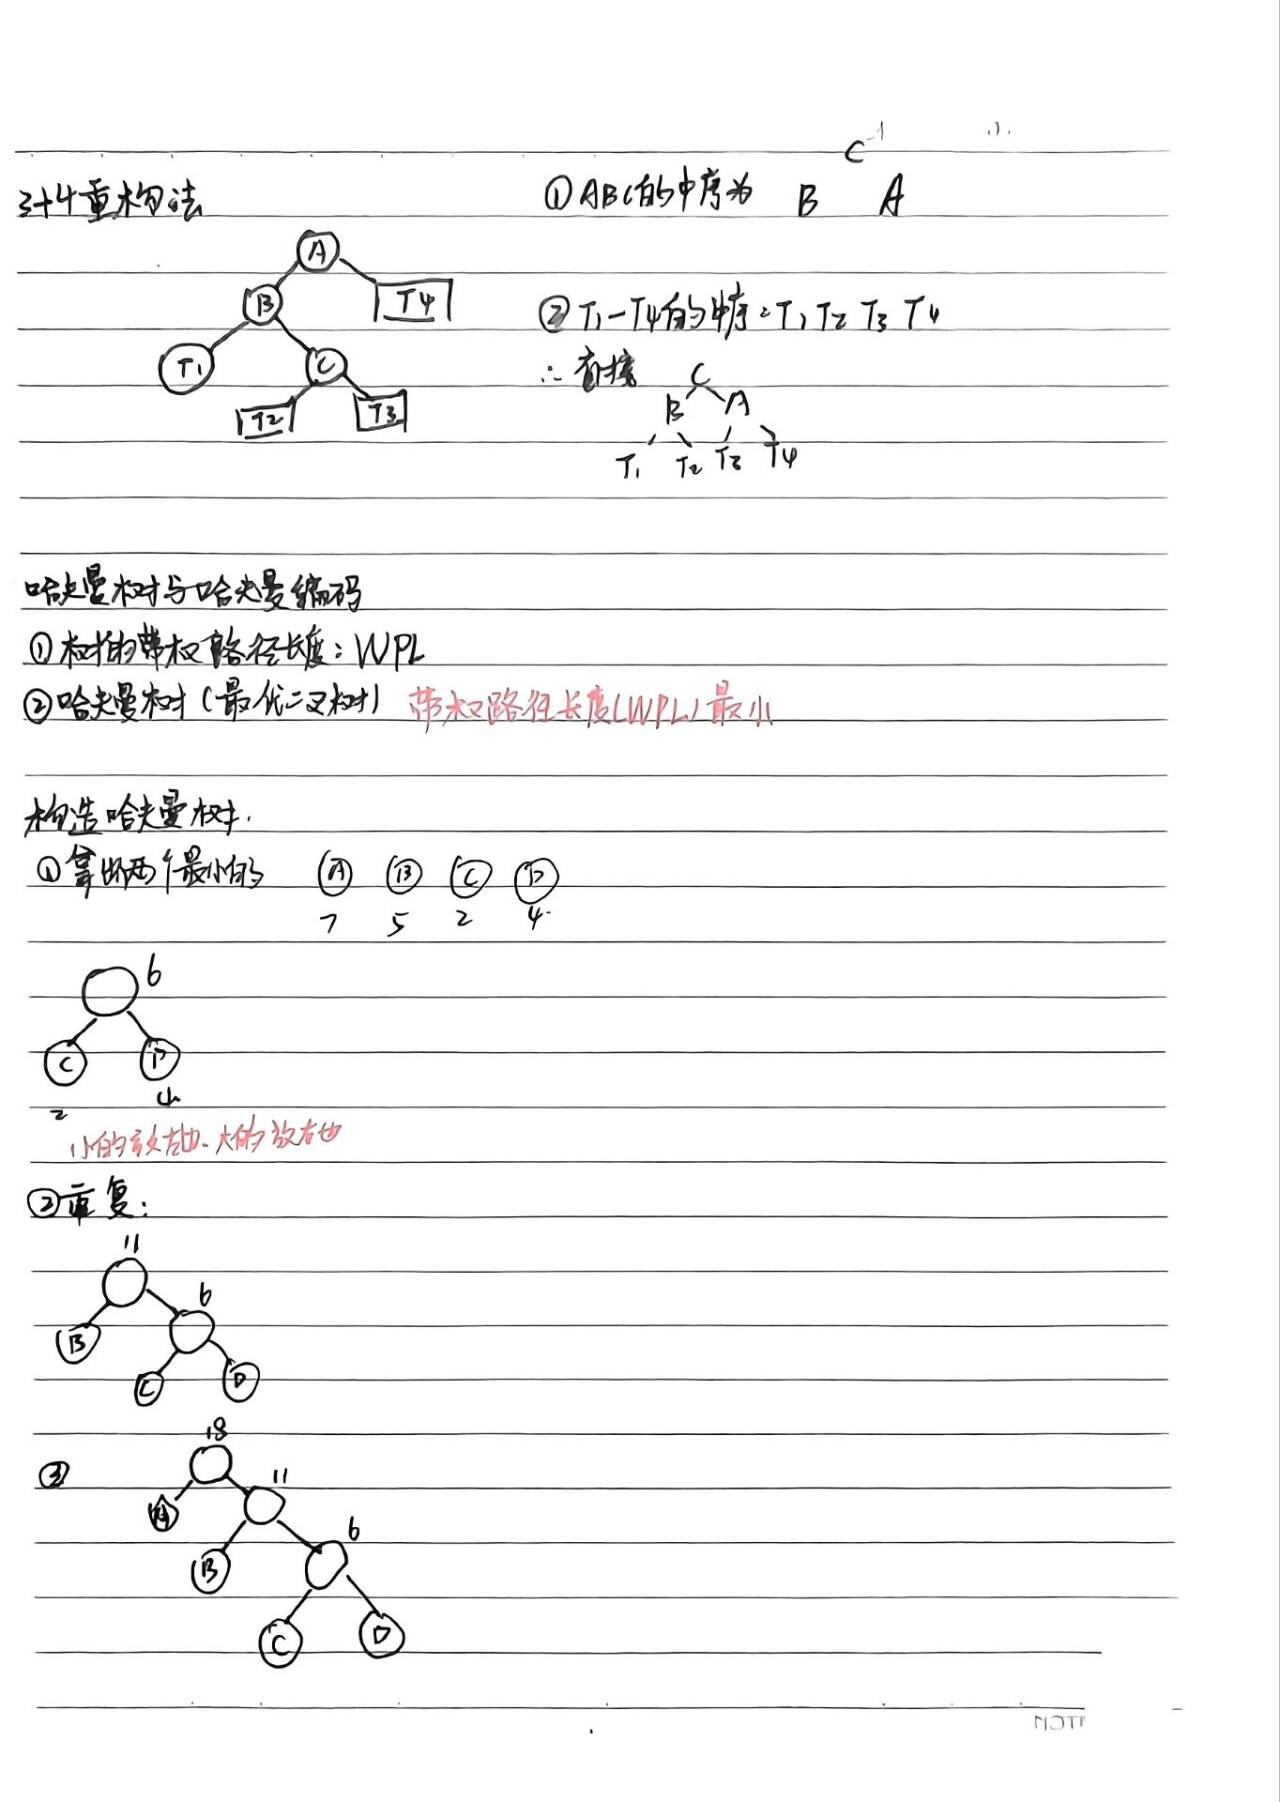 3+4重构法
① ABC的中序为 B C A
A
B T4
T1 C
T2 T3
② T1-T4的中序:T1 T2 T3 T4
∴ 直接
C
B A
T1 T2 T3 T4
哈夫曼树与哈夫曼编码
① 树的带权路径长度:WPL
② 哈夫曼树(最优二叉树) 带权路径长度(WPL)最小
构造哈夫曼树.
① 拿出两个最小的 A B C D
7 5 2 4
6
C D
2 4
小的放左边、大的放右边
② 重复:
11
6
B
C D
③
18
11
A
6
B
C D